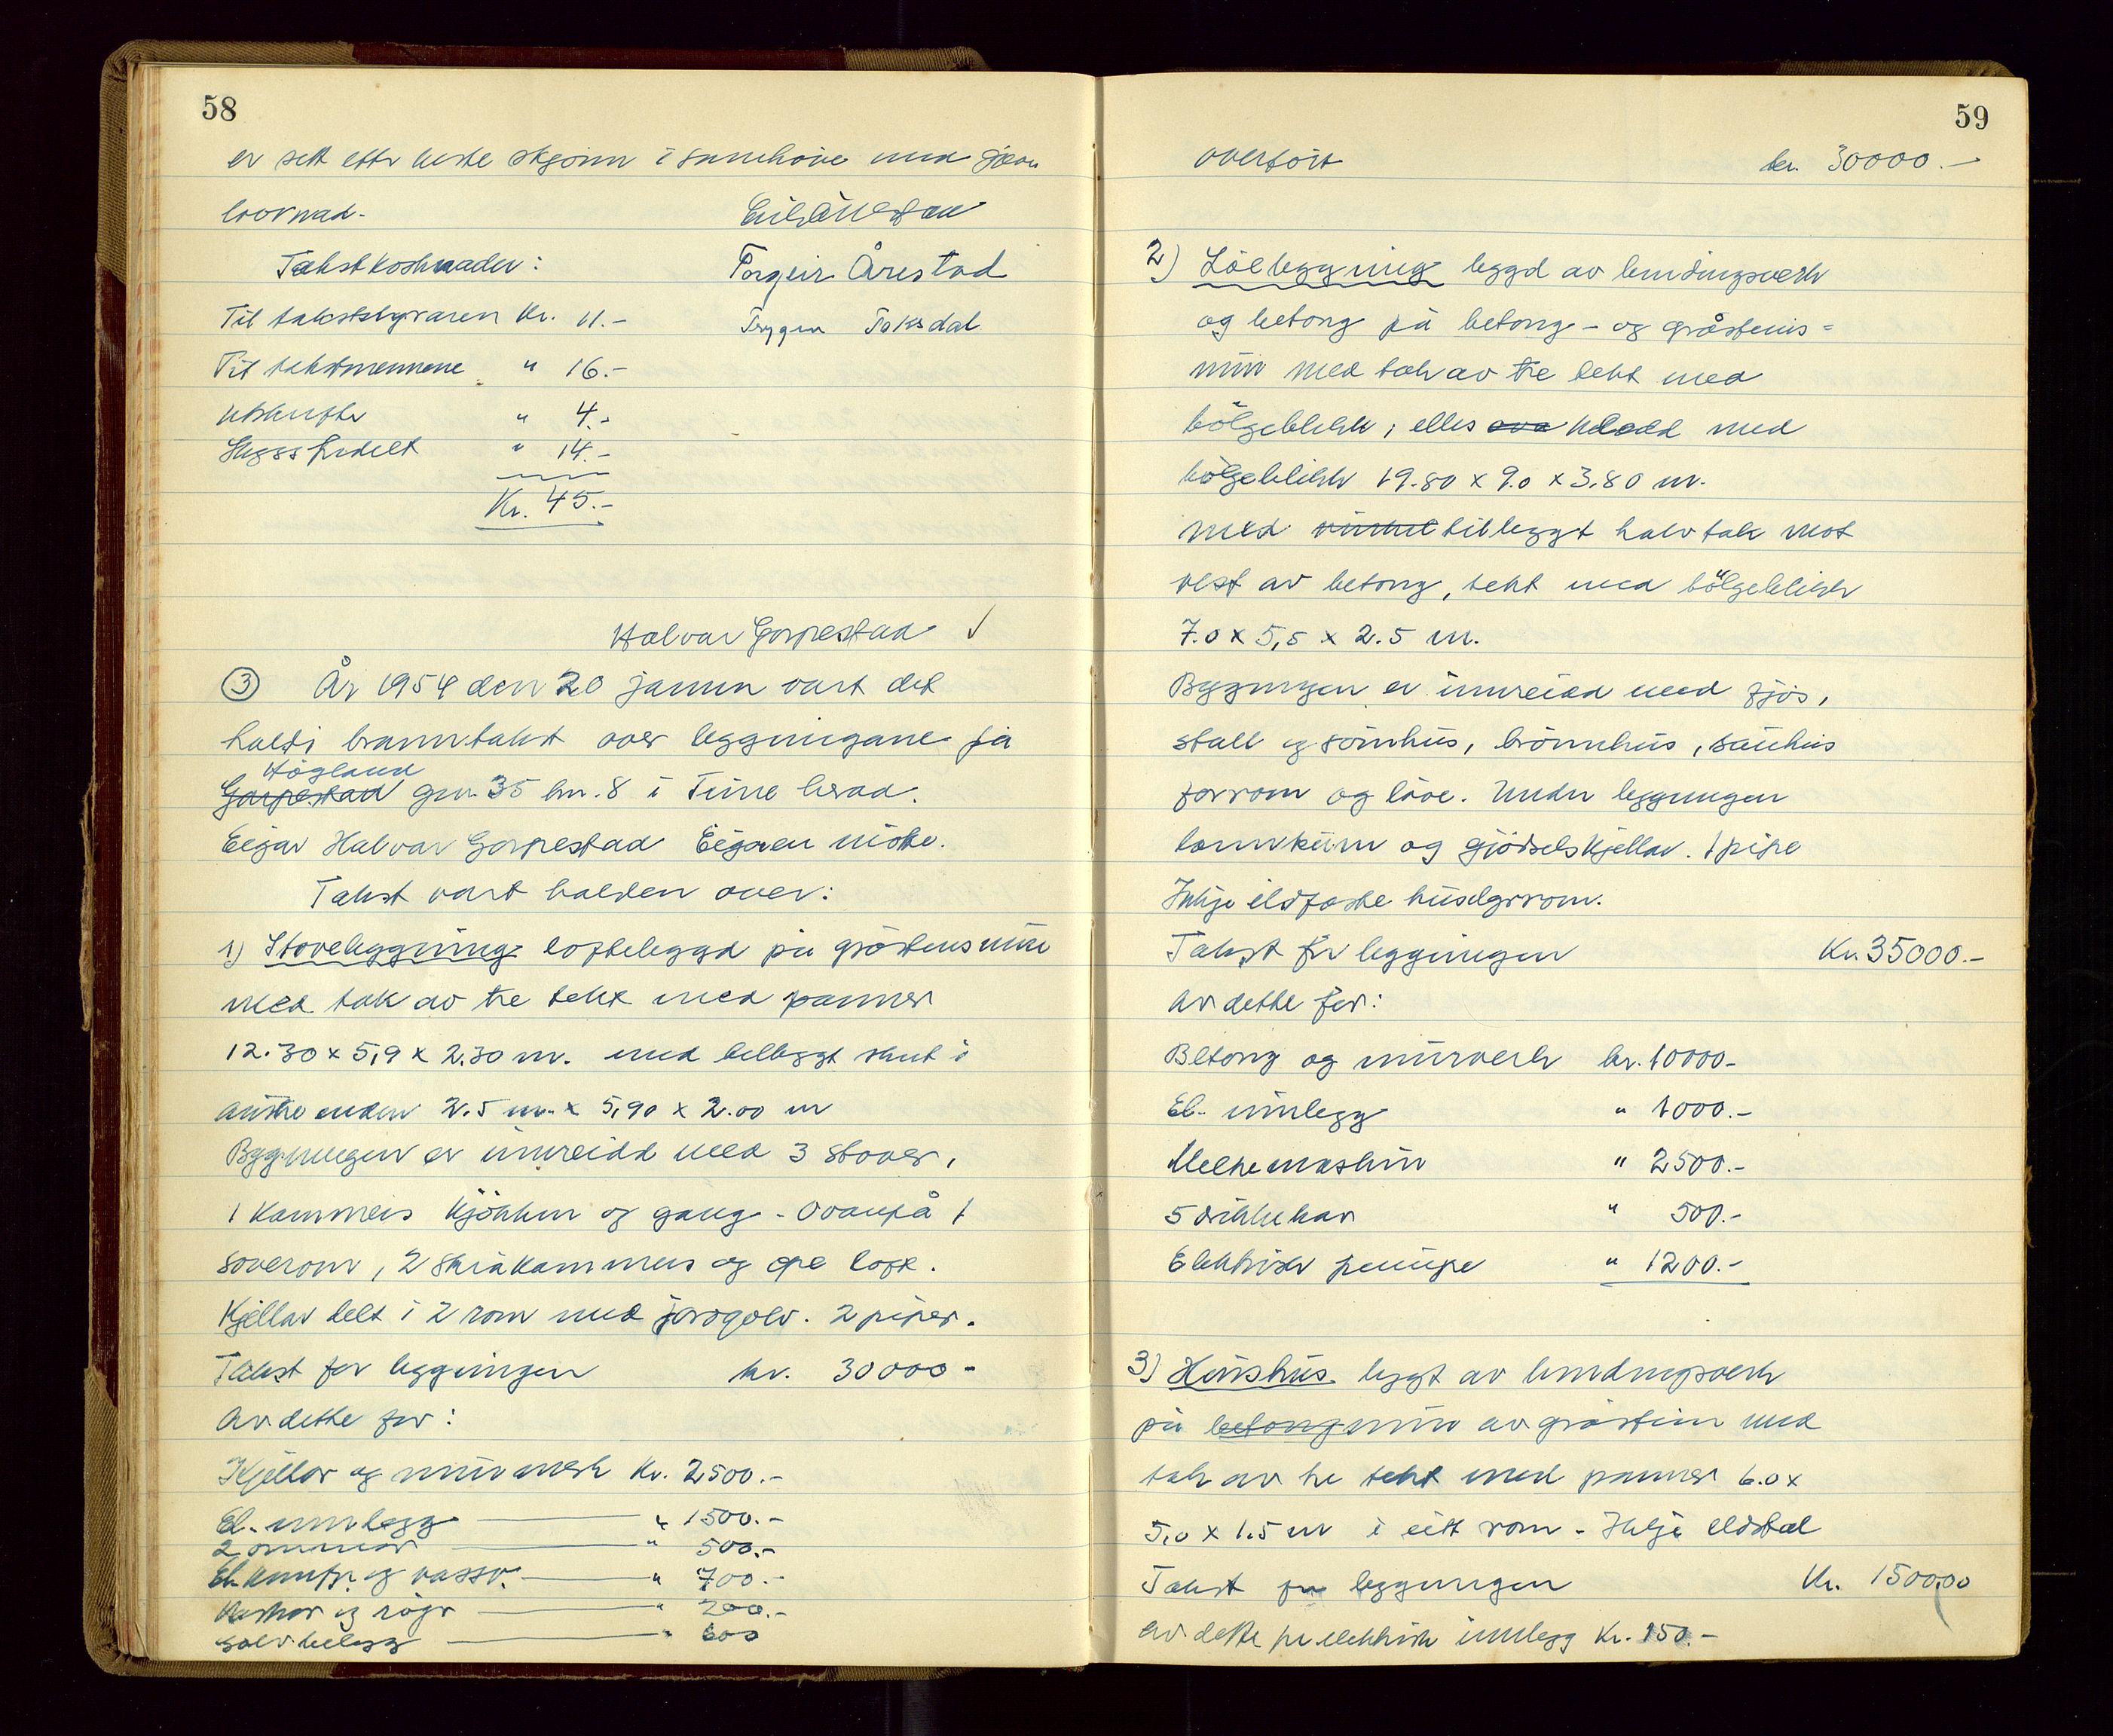 58
er sett etter beste skjønn i samhöve med jamn
loovnad.
Takstkostnader:
Torgeir Årestad
Til takststyraren Kr. 11.-
Trygve Taksdal
Til takstmennene " 16.-
Utskrifter " 4.-
Skyssfridelt " 14.-
Kr. 45.-
Halvar Garpestad ✓
3 År 1954 den 20 januar vart det
haldi branntakst over bygningane på
Högland
Garpestad gnr. 35 bnr. 8 i Time herad.
Eigar Halvar Garpestad Eigaren möte.
Takst vart halden over:
1) Stovebygning loftebygd på gråsteinsmur
med tak av tre tekt med panner
12.30 x 5,9 x 2.30 m. med tilbygt skut i
austre enden 2.5 m. x 5,90 x 2.00 m
Bygningen er innreidd med 3 stover,
1 kammers kjökken og gang - Ovanpå 1
soverom, 2 skråkammers og ope loft.
Kjellar delt i 2 rom med jordgolv. 2 piper.
Takst for bygningen kr. 30000 -
Av dette for:
Kjellar og murverk Kr. 2500.-
El. innlegg " 1500.-
2 omnar " 500.-
El. komfyr og vassv. " 700.-
Vaskar og röyr " 200.-
Golvbelegg " 600
59
overfört kr. 30000.-
2) Löebygning bygd av bindingsverk
og betong på betong- og gråsteins-
mur med tak av tre tekt med
bölgeblikk, elles ova kledd med
bölgeblikk 19.80 x 9.0 x 3.80 m.
med tilbyggt halvtak mot
vest av betong, tekt med bölgeblikk
7.0 x 5,5 x 2.5 m.
Bygningen er innreidd med fjös,
stall og somhus, brönnhus, sauhus
forrom og löe. Under bygningen
landkum og gjödselskjellar. 1 pipe
Inkje eldfaste husdyrrom.
Takst for bygningen Kr. 35000.-
Av dette for:
Betong og murverk kr. 10000-
El. innlegg " 1000.-
Melkemaskin " 2500.-
5 drikkekar " 500.-
Elektrisk pumpe " 1200.-
3) Hönshus bygt av bindingsverk
på betongmur av gråstein med
tak av tre tekt med panner 6.0 x
5,0 x 1.5 m i eitt rom - Inkje eldstad
Takst for bygningen Kr. 1500,00
Av dette for elektrisk innlegg Kr. 150.-